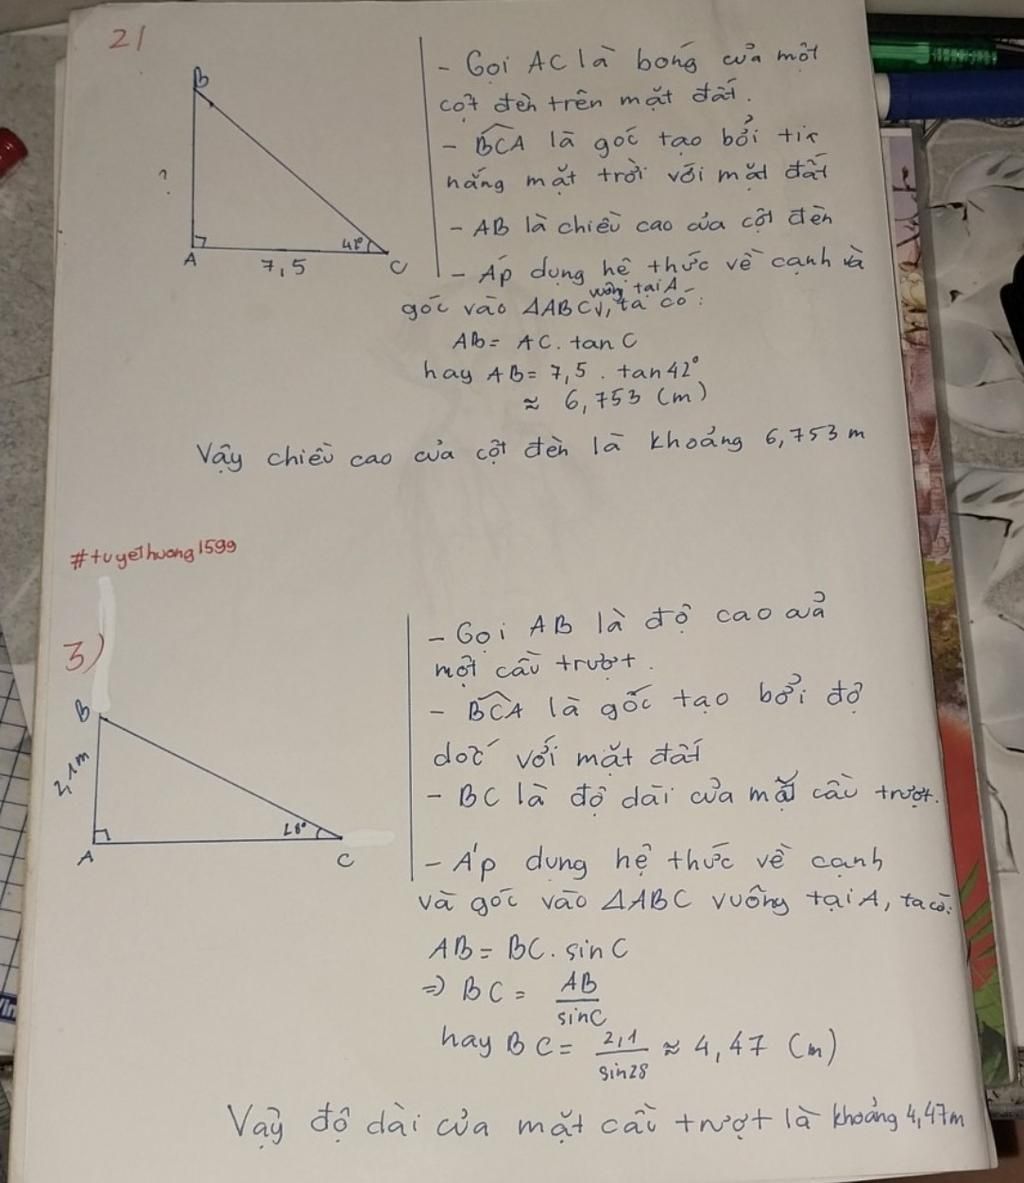 2)
B
?
A
7,5
42°
C
- Gọi AC là bóng của một
cột đèn trên mặt đất.
- BCA là góc tạo bởi tia
nắng mặt trời với mặt đất
- AB là chiều cao của cột đèn
- Áp dụng hệ thức về cạnh và
góc vào ΔABC vuông tại A, ta có:
AB = AC. tan C
hay AB = 7,5 . tan 42°
≈ 6,753 (m)
Vậy chiều cao của cột đèn là khoảng 6,753 m
#tuyethuong1599
3)
B
2,1m
A
28°
C
- Gọi AB là độ cao của
một cầu trượt.
- BCA là góc tạo bởi độ
dốc với mặt đất
- BC là độ dài của mặt cầu trượt.
- Áp dụng hệ thức về cạnh
và góc vào ΔABC vuông tại A, ta có:
AB = BC. sin C
⇒ BC = AB / sin C
hay BC = 2,1 / sin 28 ≈ 4,47 (m)
Vậy độ dài của mặt cầu trượt là khoảng 4,47m